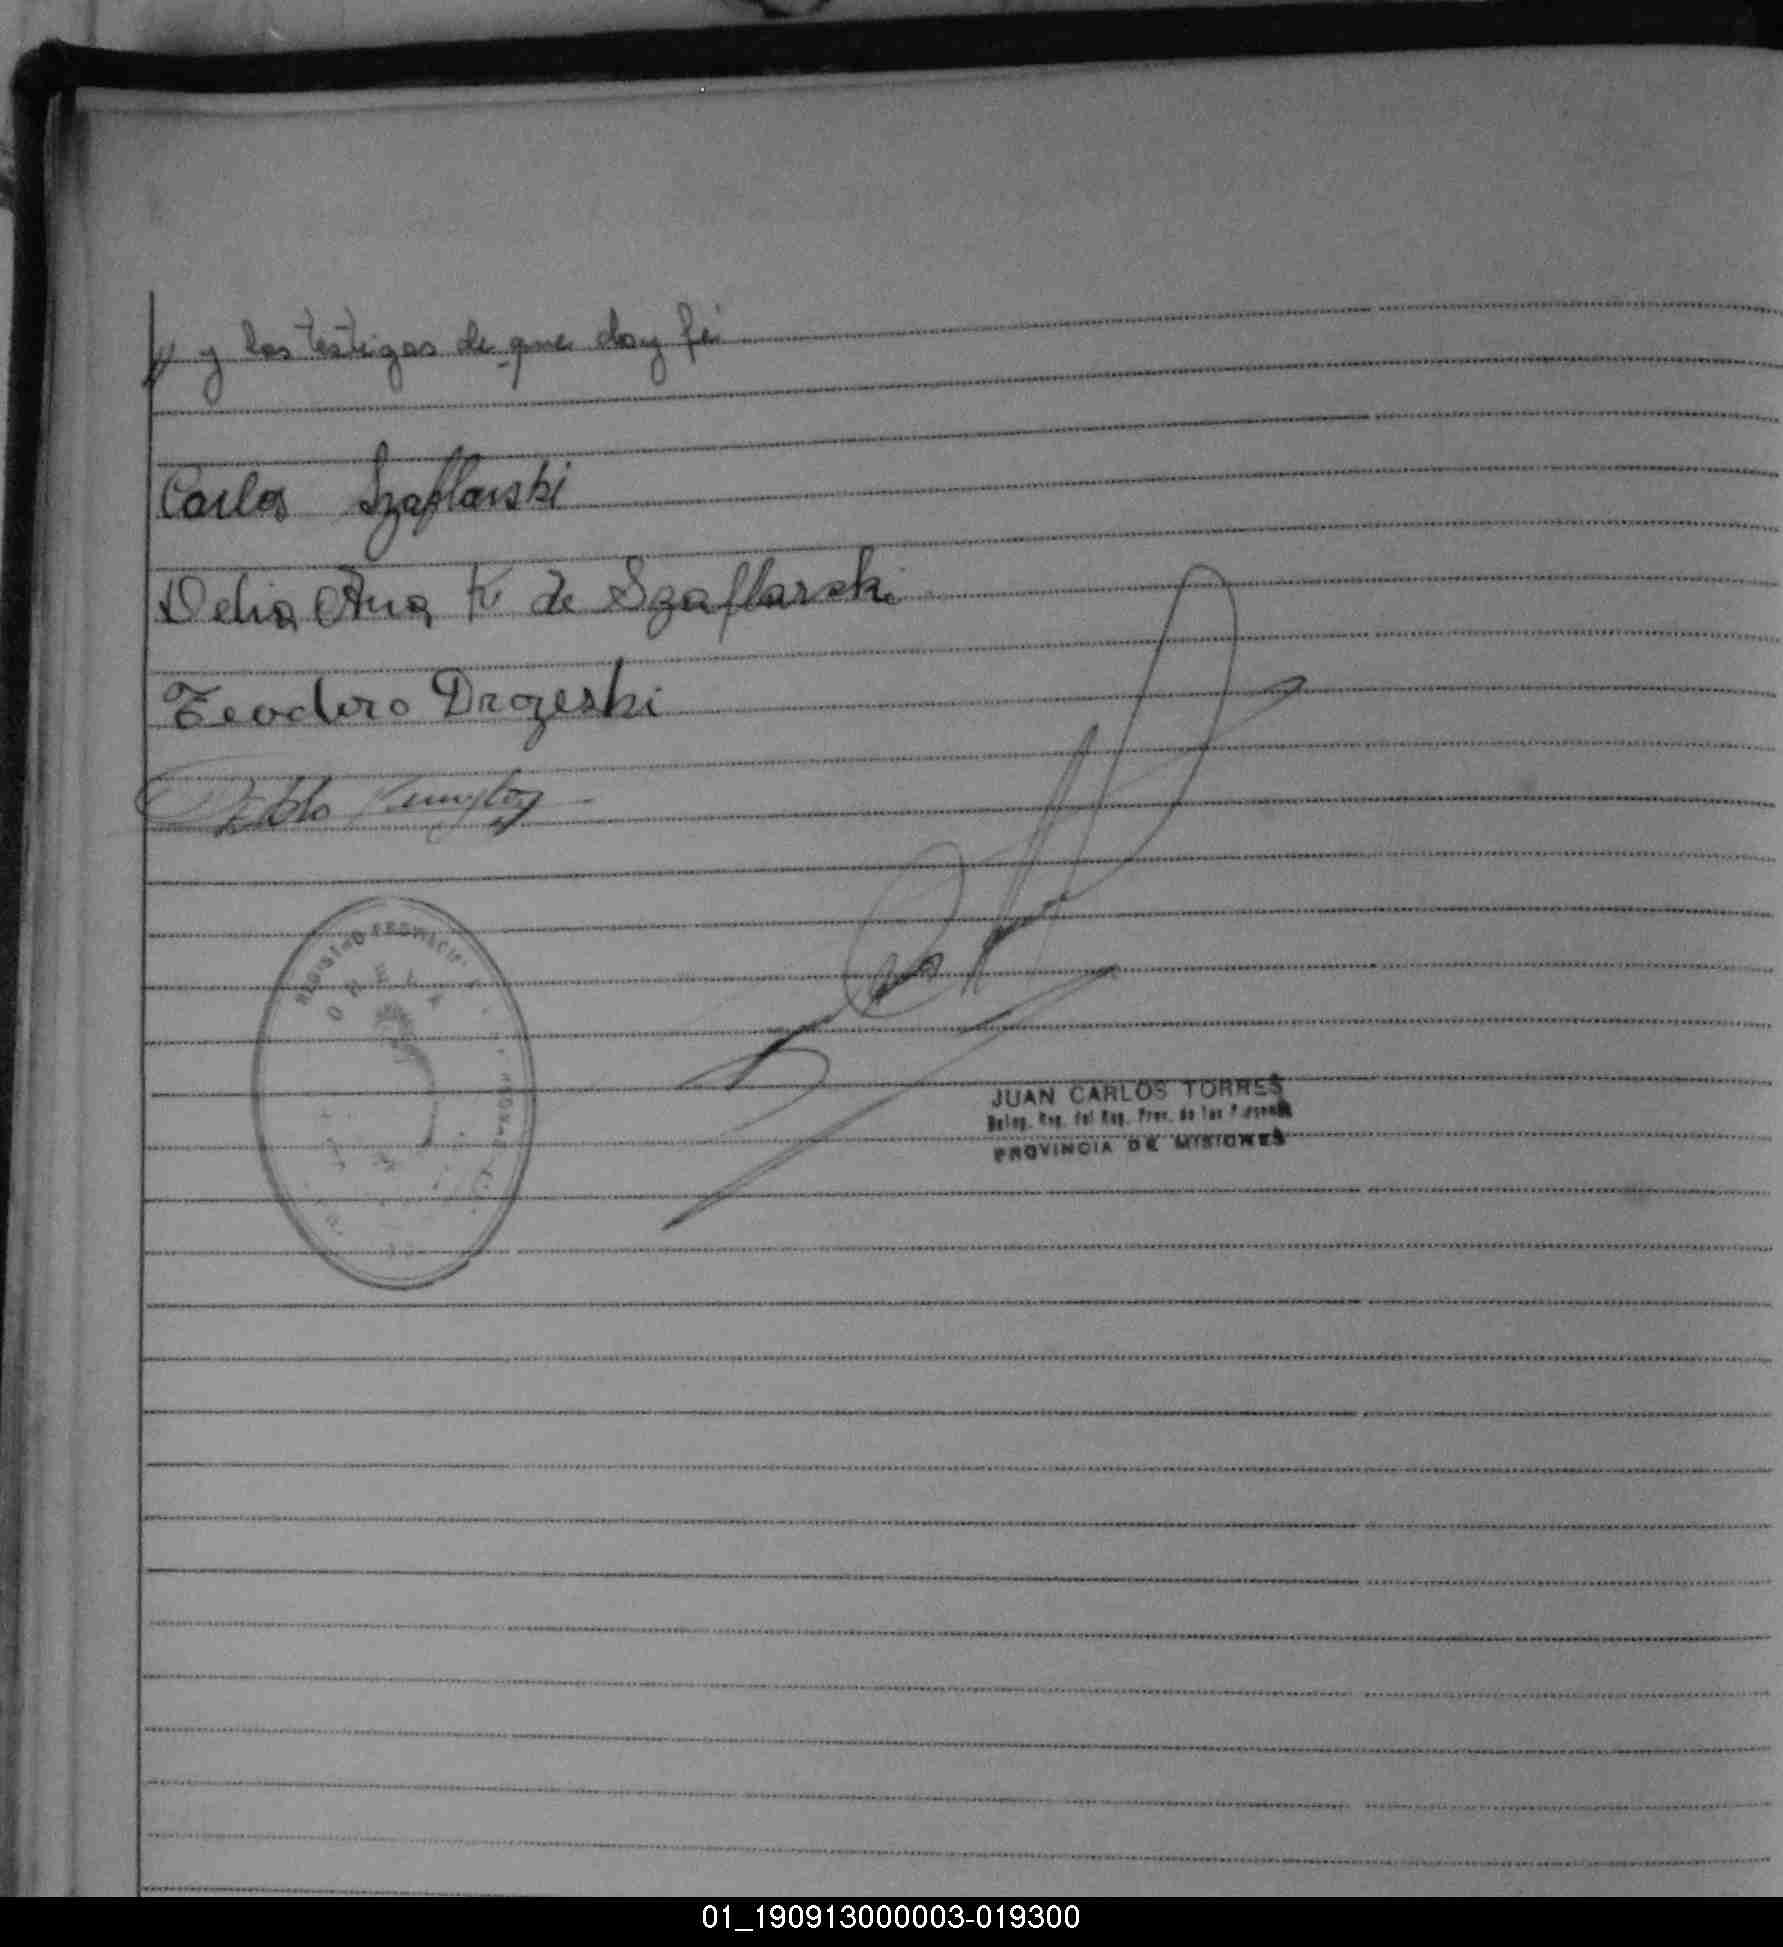 y los testigos de que doy fé
Carlos Szaflarski
Delia Ana K de Szaflarski
Teodoro Drozeski
Pablo
REGISTRO PROVINCIAL
JUAN CARLOS TORRES
Deleg. Reg. del Reg. Prov. de las Personas
PROVINCIA DE MISIONES
01_190913000003-019300